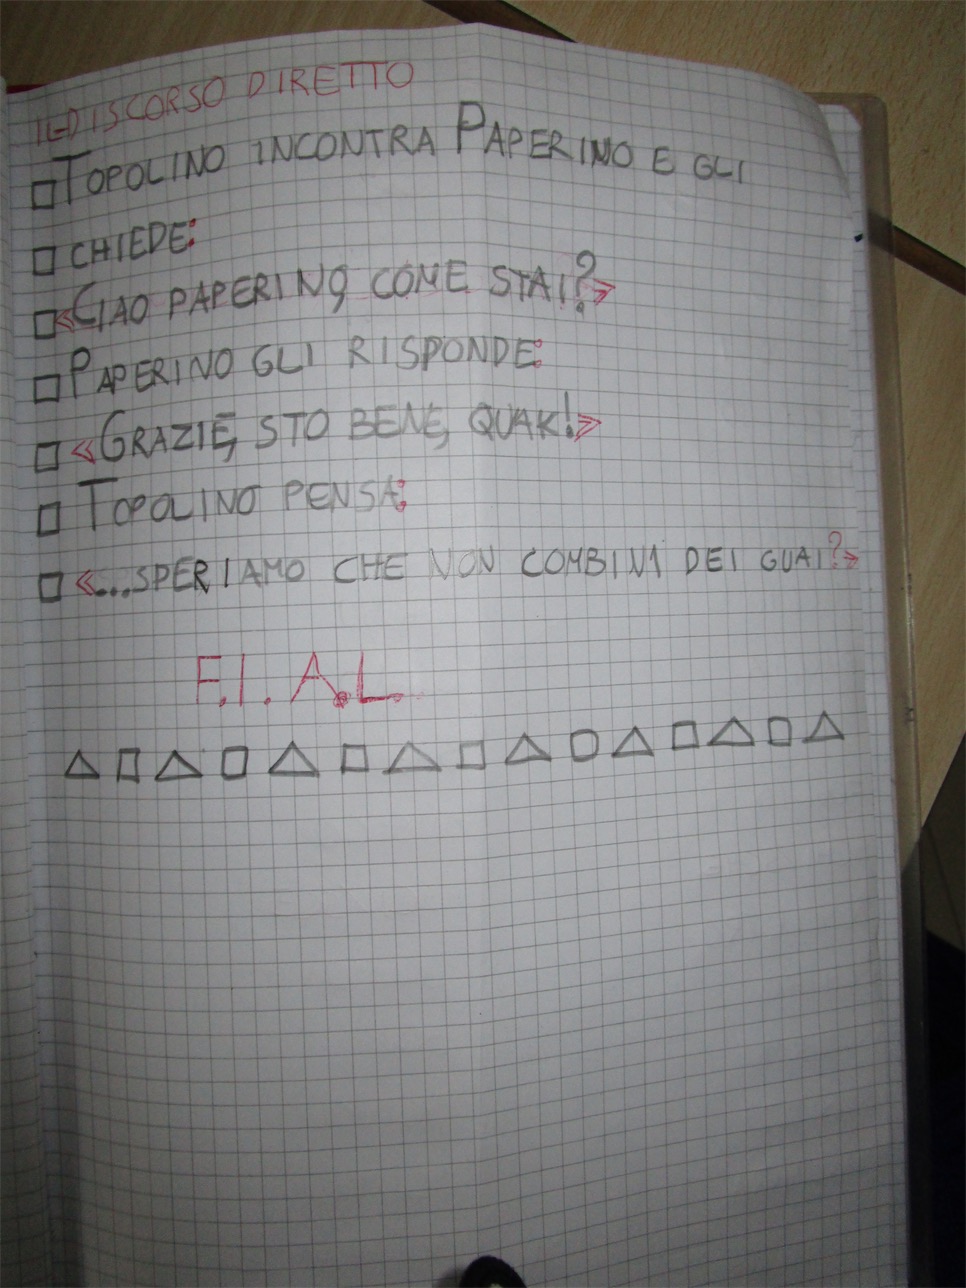 IL DISCORSO DIRETTO
TOPOLINO INCONTRA PAPERINO E GLI
CHIEDE:
«CIAO PAPERINO, COME STAI?»
PAPERINO GLI RISPONDE:
«GRAZIE, STO BENE, QUAK!»
TOPOLINO PENSA:
«...SPERIAMO CHE NON COMBINI DEI GUAI?»
F.I.A.L.